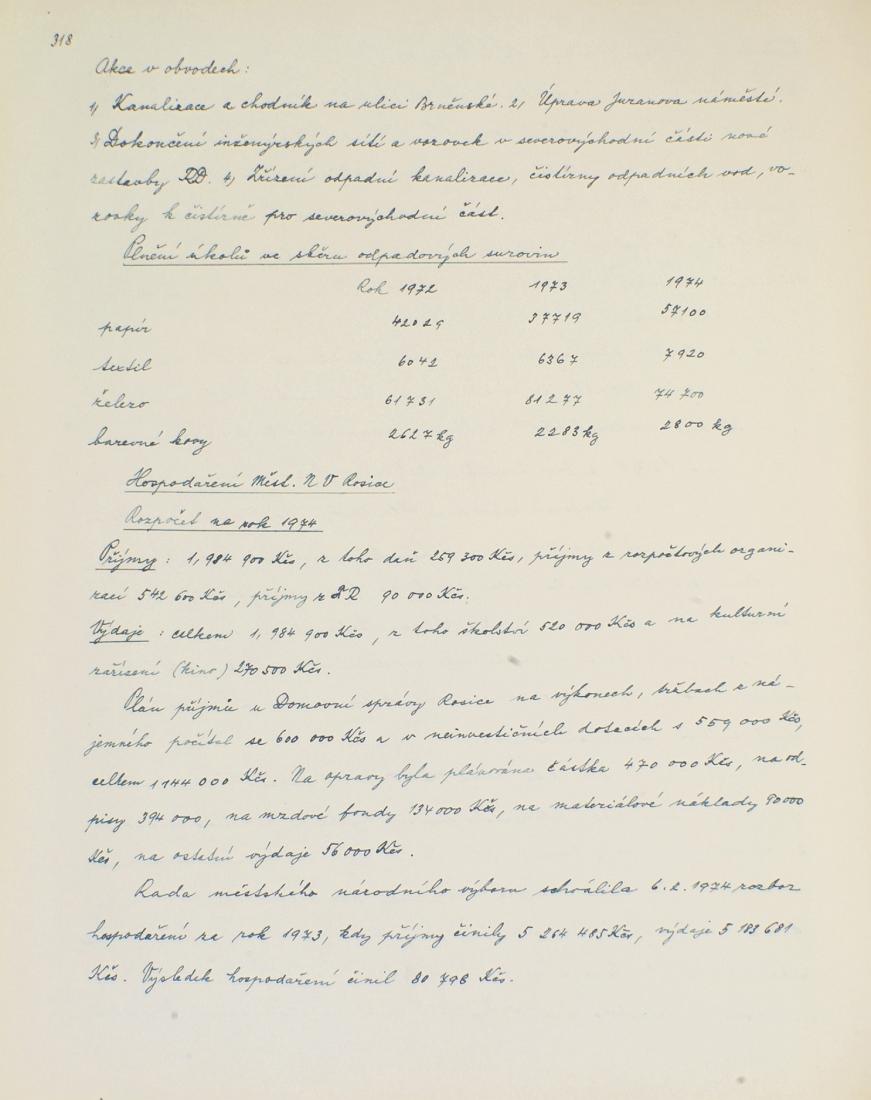 318
Akce v obvodech:
1) Kanalizace a chodník na ulici Brněnské. 2) Úprava Juranova náměstí.
3) Dokončení inženýrských sítí a vozovek v severovýchodní části nové
zástavby RD. 4) Zřízení odpadní kanalizace, čistírny odpadních vod, vo-
zovky k čistírně pro severovýchodní část.
Plnění úkolů ve sběru odpadových surovin
Rok 1972 1973 1974
papír 42029 37719 57100
textil 6042 6367 7920
železo 61731 81277 74700
barevné kovy 2627 kg 2283 kg 2800 kg
Hospodaření Měst. N V Rosice
Rozpočet na rok 1974
Příjmy: 1,984 900 Kčs, z toho daň 259 300 Kčs, příjmy z rozpočtových organi-
zací 542 600 Kčs, příjmy z FR 90 000 Kčs.
Výdaje: celkem 1,984 900 Kčs, z toho školství 520 000 Kčs a na kulturní
zařízení (kino) 270 500 Kčs.
Plán příjmů u Domovní správy Rosice na výkonech, tržbách z ná-
jemného počítal se 600 000 Kčs a v neinvestičních dotacích s 559 000 Kčs,
celkem 1 144 000 Kčs. Na opravy byla plánována částka 470 000 Kčs, na od-
pisy 394 000, na mzdové fondy 134 000 Kčs, na materiálové náklady 90000
Kčs, na ostatní výdaje 56 000 Kčs.
Rada městského národního výboru schválila 6. 2. 1974 rozbor
hospodaření za rok 1973, kdy příjmy činily 5 264 485 Kčs, výdaje 5 183 681
Kčs. Výsledek hospodaření činil 80 798 Kčs.